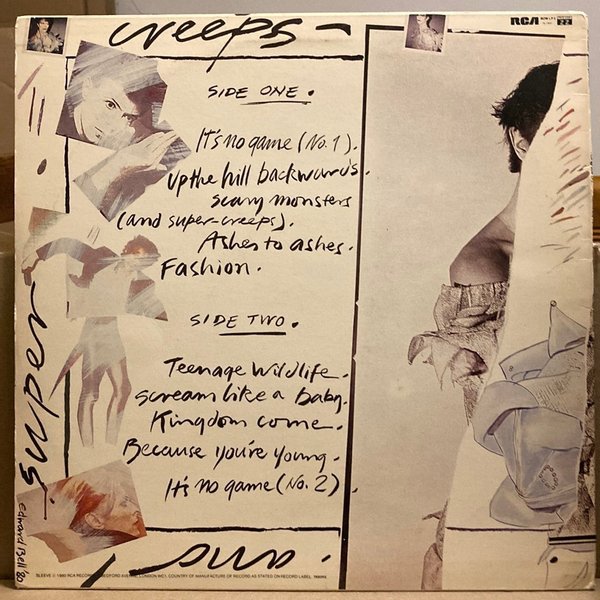 creeps
RCA
SIDE ONE.
It's no game (No. 1).
Up the hill backwards.
scary monsters
(and super-creeps).
Ashes to ashes.
Fashion.
SIDE TWO.
Teenage wildlife.
scream like a baby.
Kingdom come.
Because you're young.
It's no game (No. 2).
super
and
Edward Bell '80
SLEEVE 1980 RCA RECORDS BEDFORD AVENUE, LONDON WC1. COUNTRY OF MANUFACTURE OF RECORD AS STATED ON RECORD LABEL.